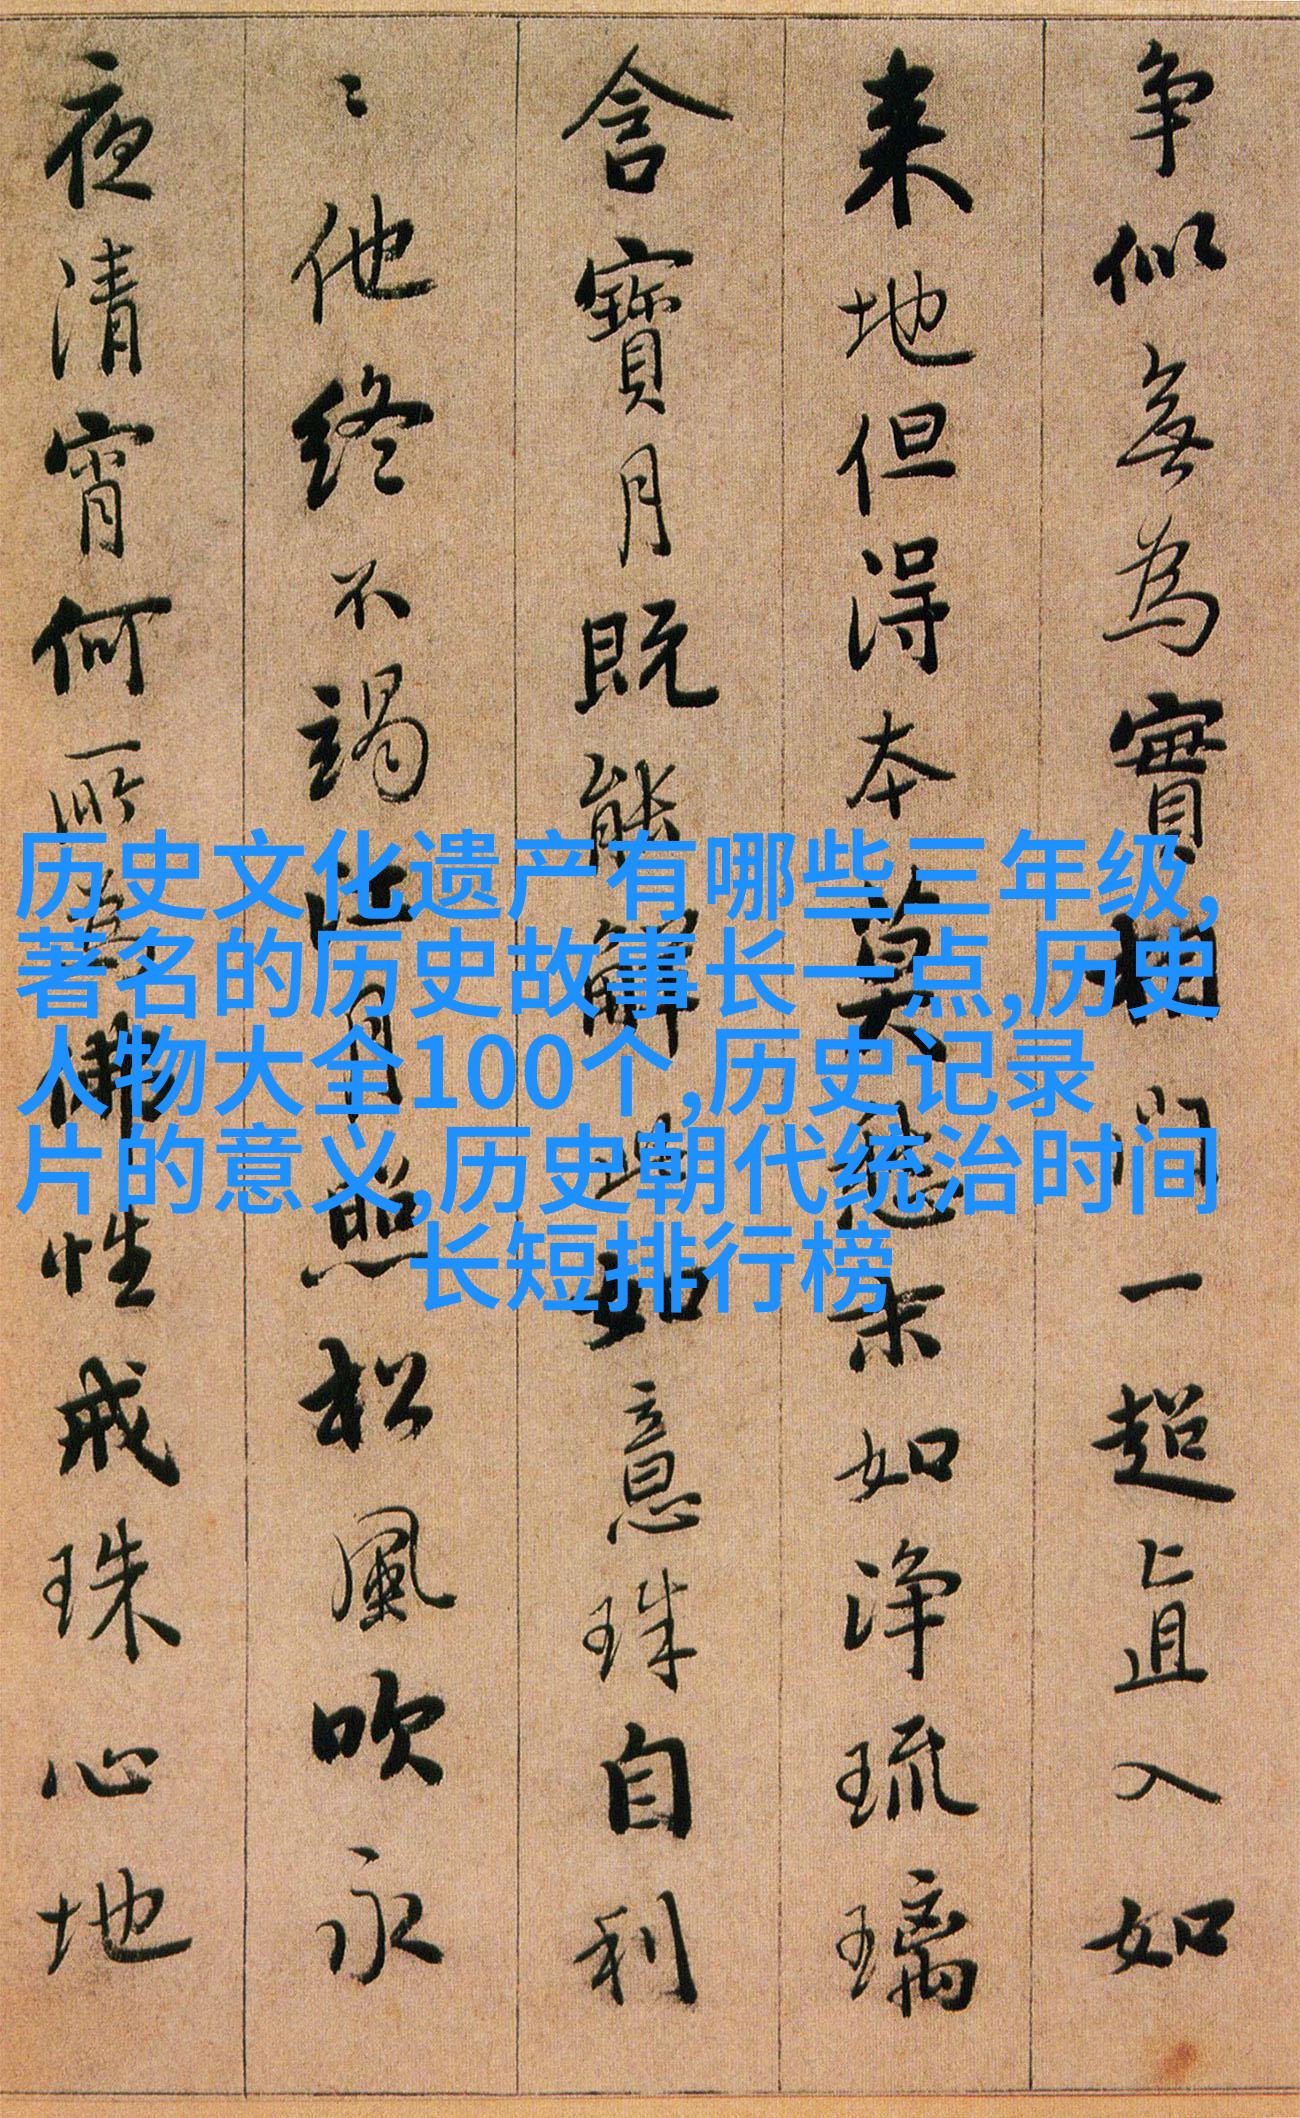 争似無為實相門一超直入如
来地但得本莫愁末如淨琉璃
含寶月既能解此如意珠自利
〻他終不竭江月照松風吹永
夜清宵何所為佛性戒珠心地
历史文化遗产有哪些三年级,
著名的历史故事长一点,历史
人物大全100个,历史记录
片的意义,历史朝代统治时间
长短排行榜